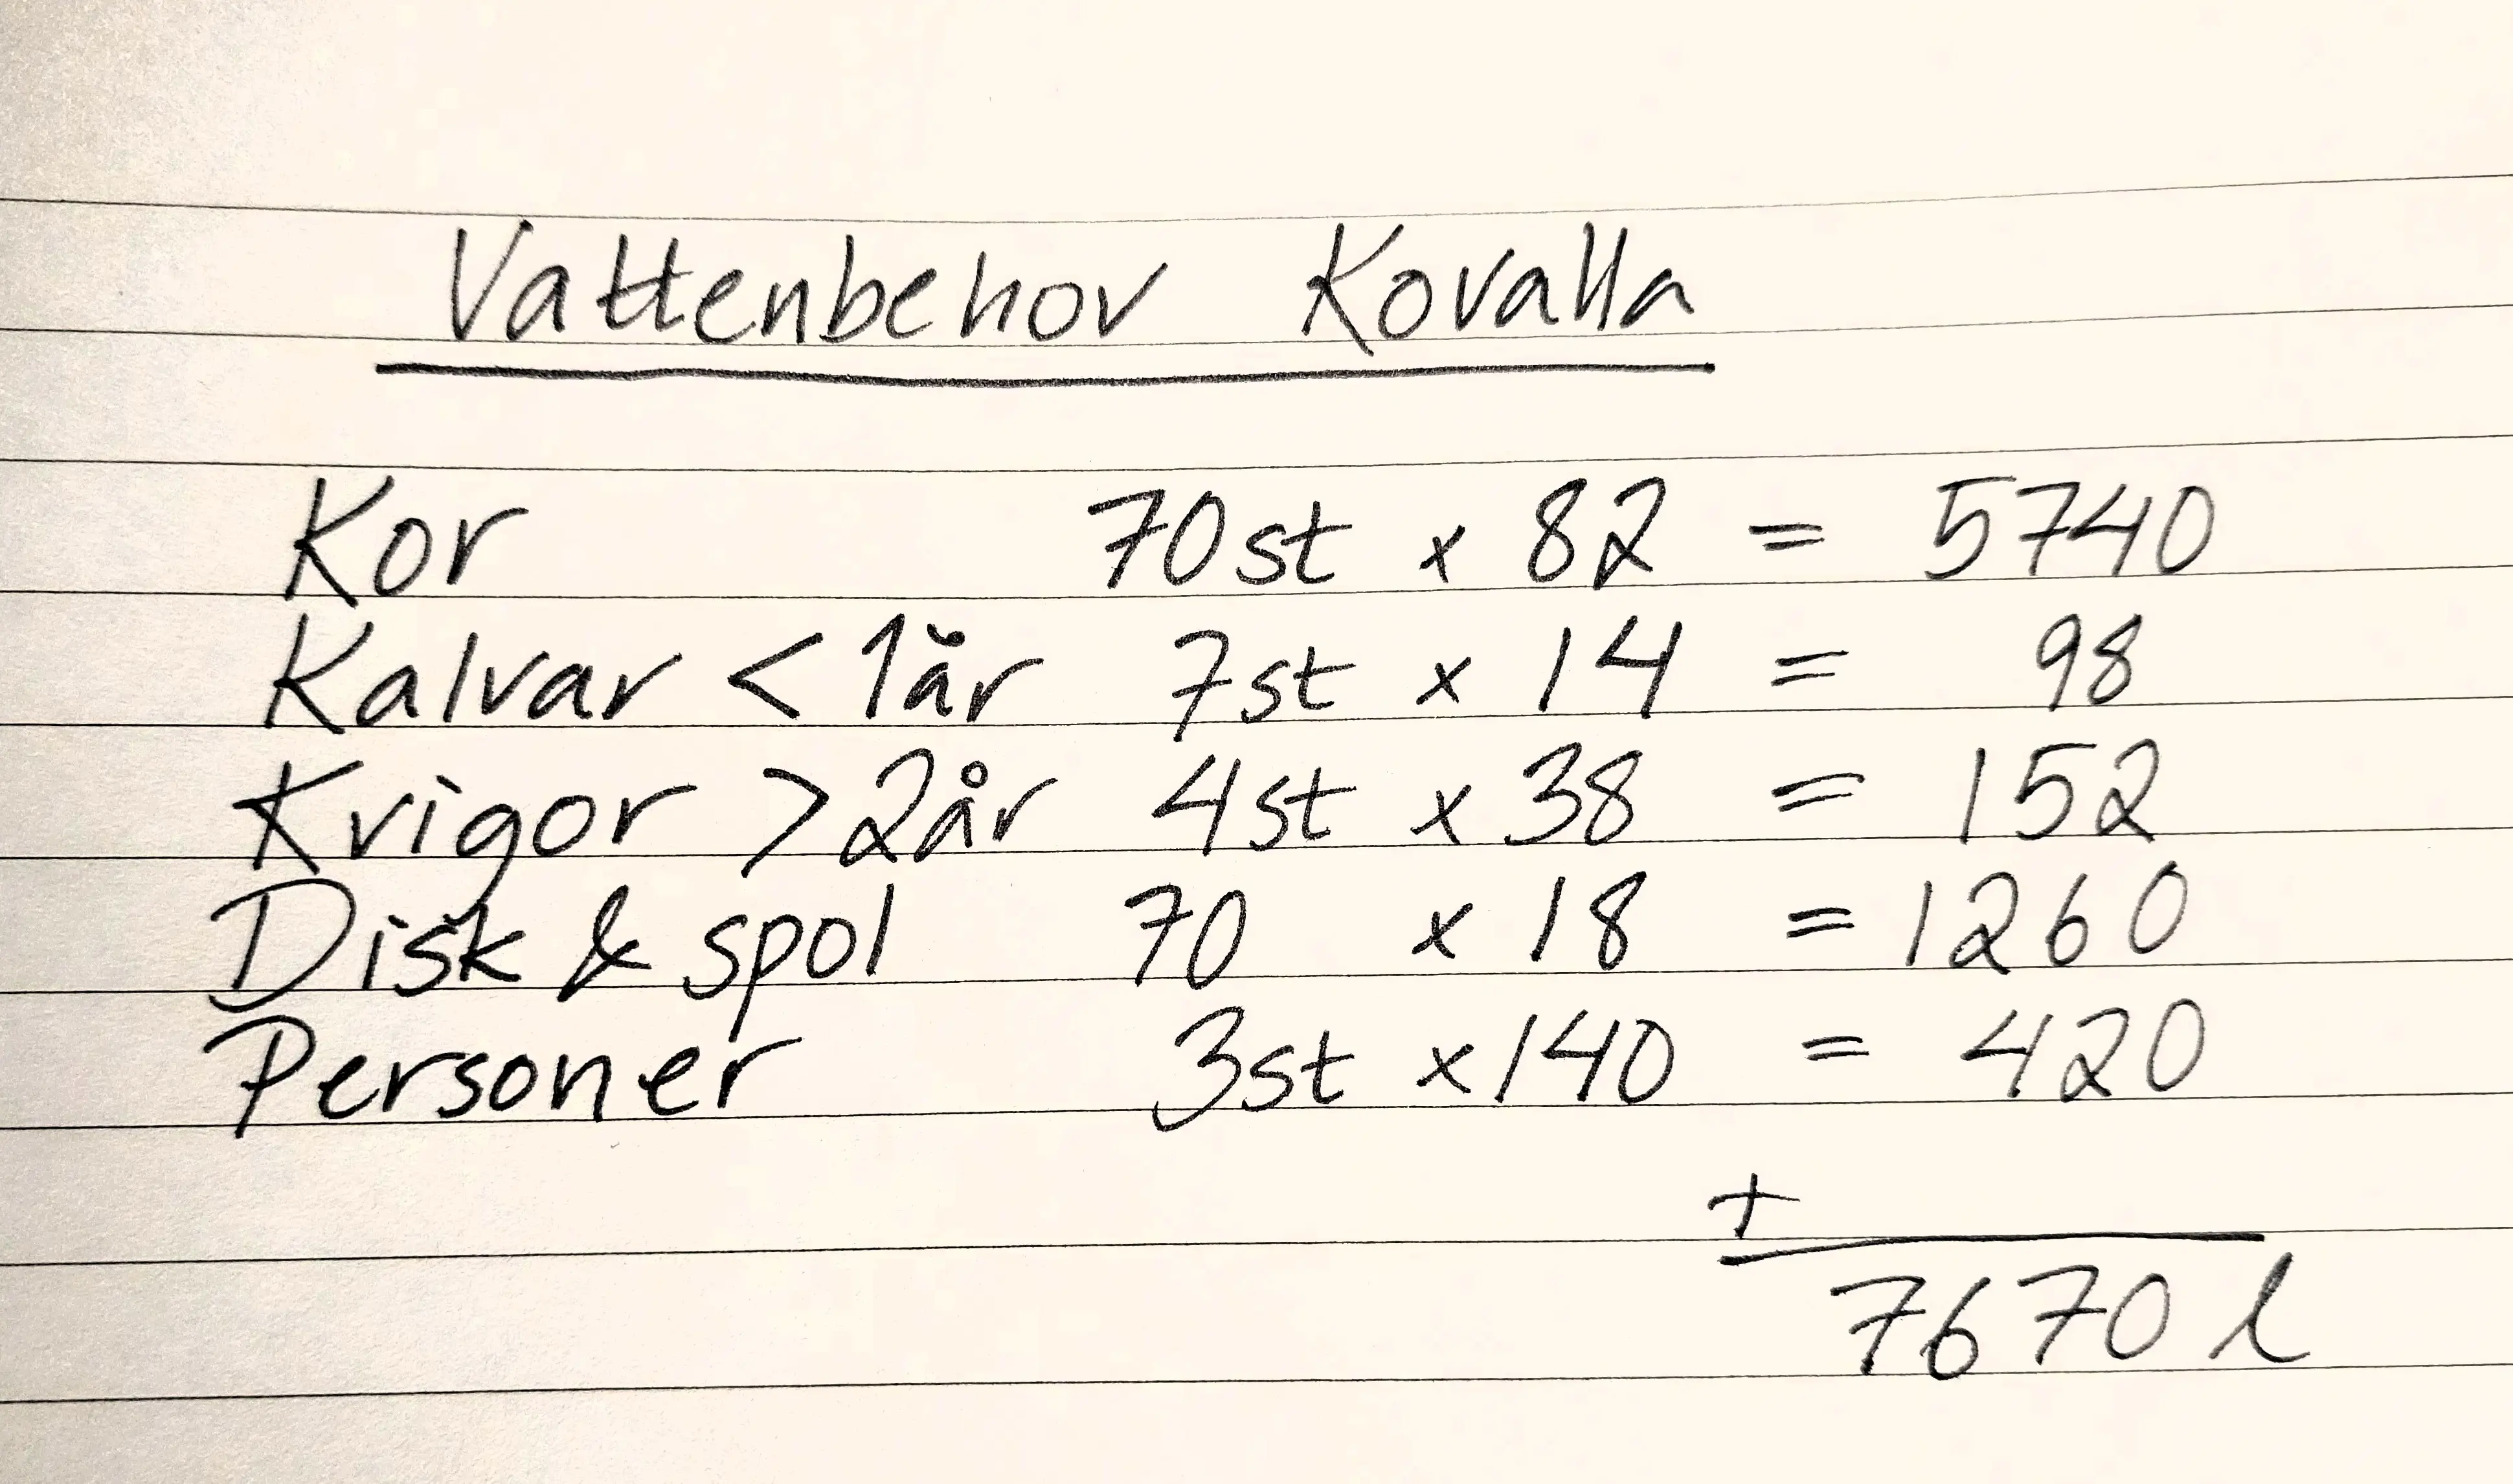 Vattenbehov Kovalla
Kor 70st x 82 = 5740
Kalvar < 1år 7st x 14 = 98
Kvigor > 2år 4st x 38 = 152
Disk & spol 70 x 18 = 1260
Personer 3st x 140 = 420
+
7670 l